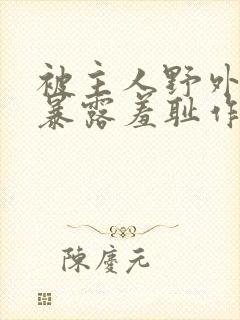 被主人野外
暴露羞耻作
陳慶元